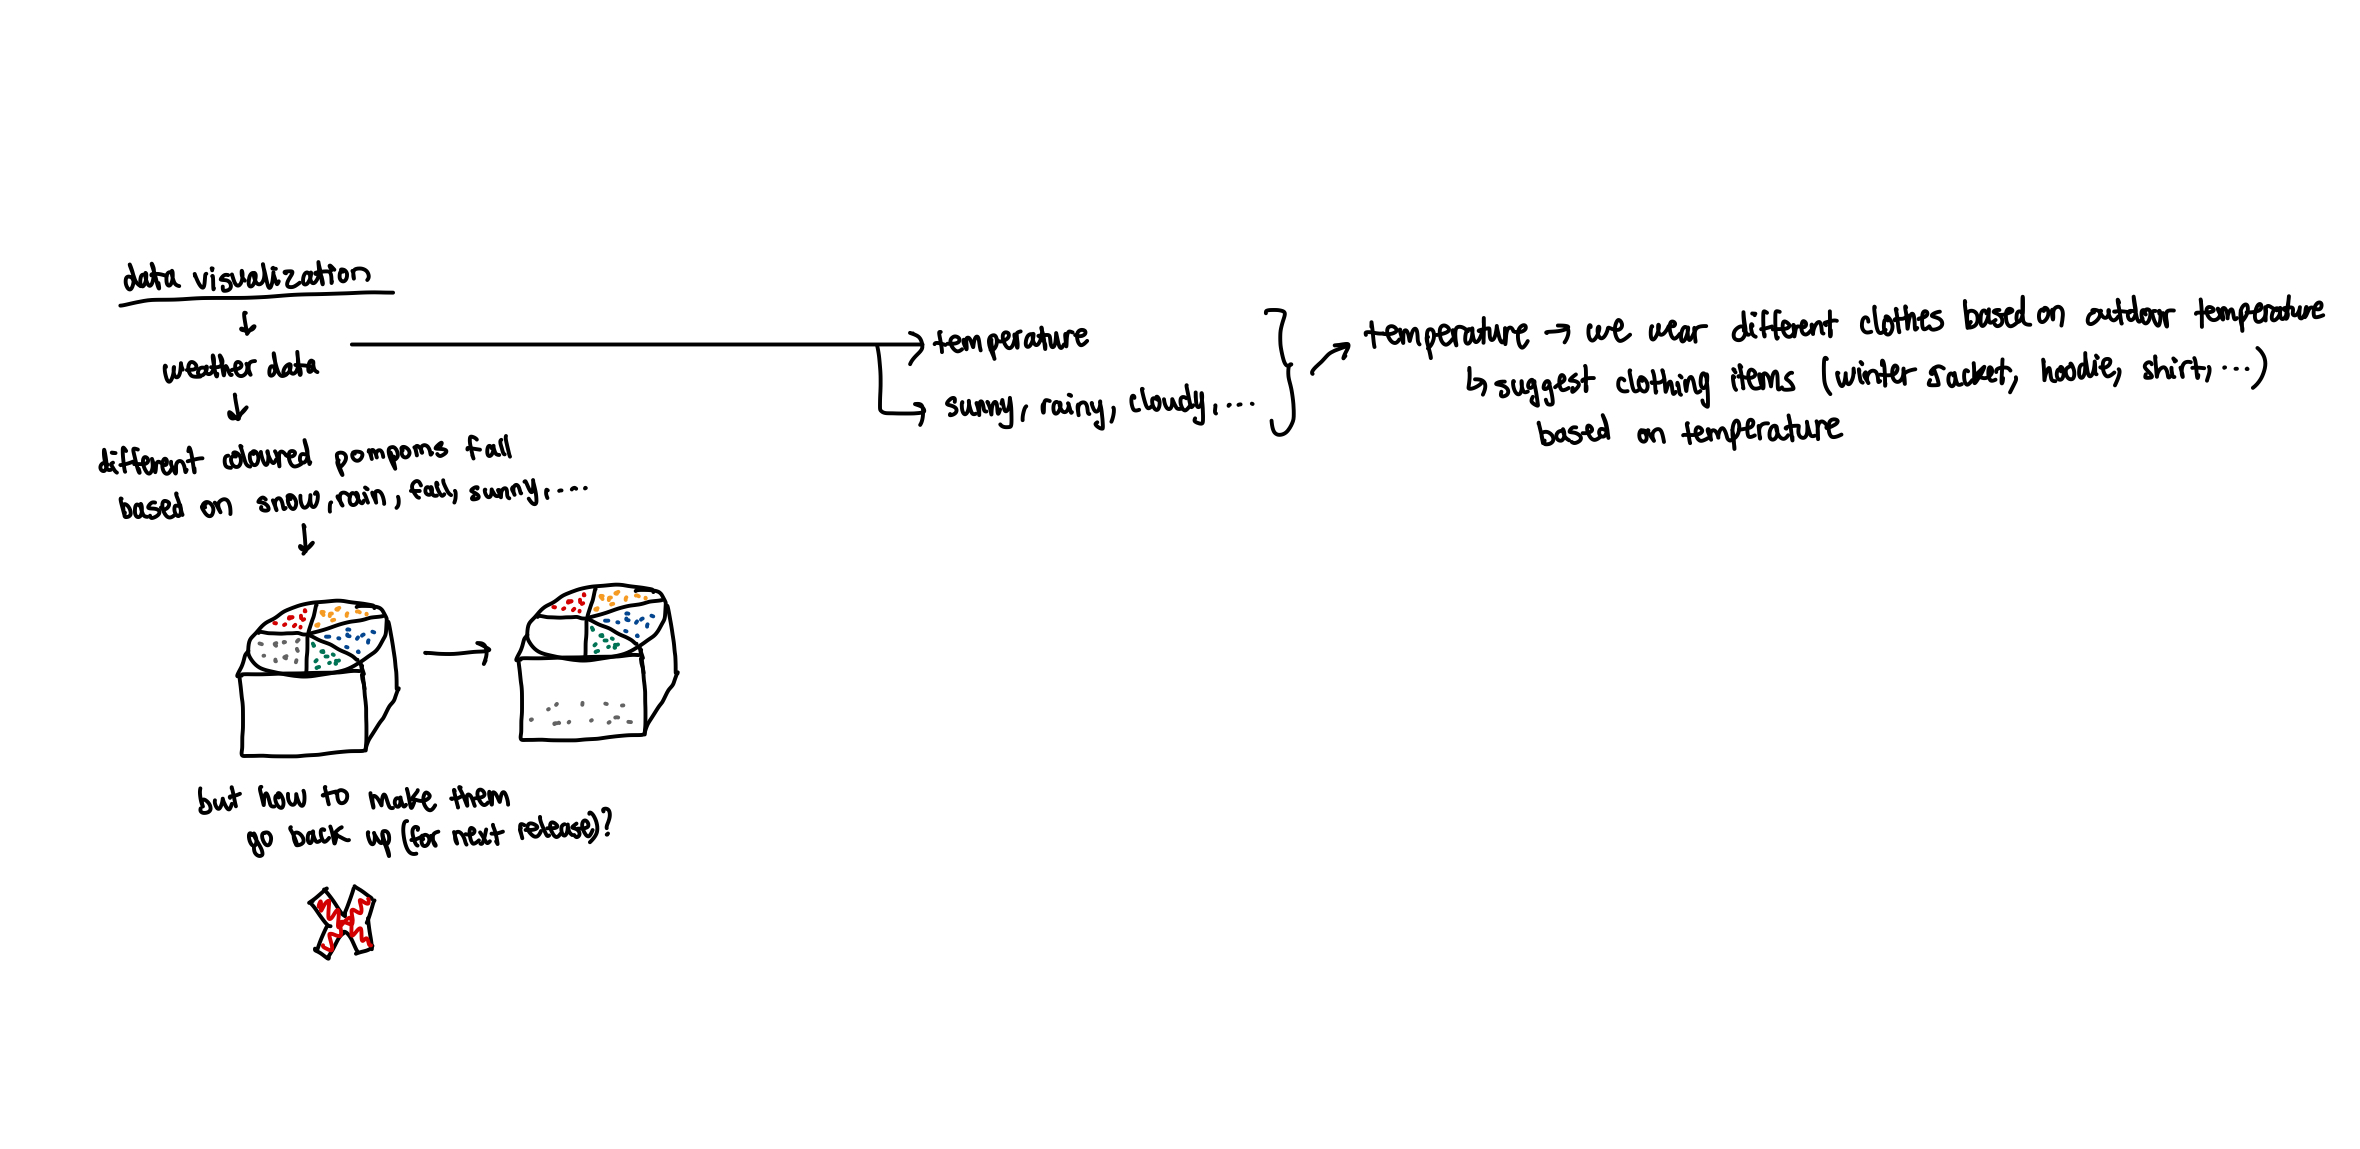 data visualization
weather data
different coloured pompoms fall
based on snow, rain, fall, sunny, ....
but how to make them
go back up (for next release)?
temperature
sunny, rainy, cloudy, ...
temperature → we wear different clothes based on outdoor temperature
↳ suggest clothing items (winter jacket, hoodie, shirt, ...)
based on temperature